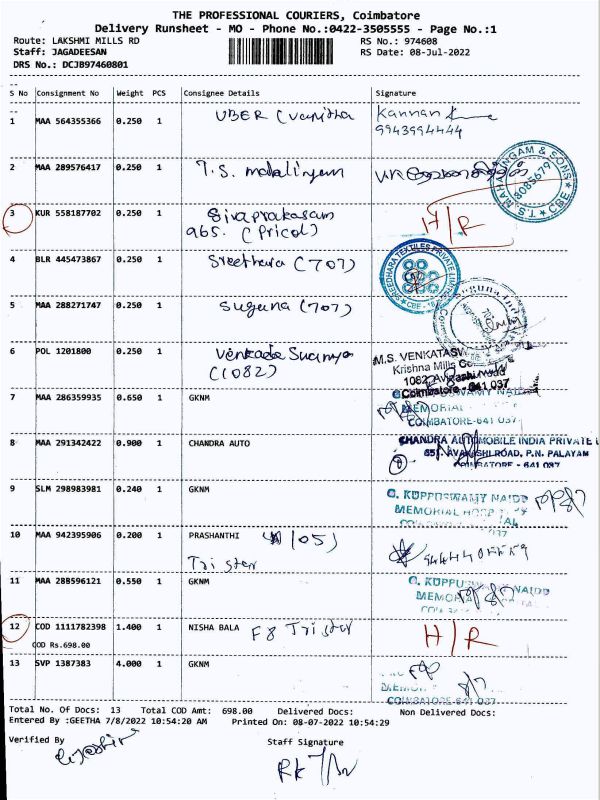 THE PROFESSIONAL COURIERS, Coimbatore
Delivery Runsheet - MO - Phone No.:0422-3505555 - Page No.:1
Route: LAKSHMI MILLS RD RS No.: 974608
Staff: JAGADEESAN RS Date: 08-Jul-2022
DRS No.: DCJB97460801
S No Consignment No Weight PCS Consignee Details Signature
1 MAA 564355366 0.250 1 UBER (Vanitha Kannan
9943994444
2 MAA 289576417 0.250 1 T.S. mahalingam
T.S. MAHALINGAM & SONS CBE 8085679
3 KUR 558187702 0.250 1 Sivaprakasam H/R
965. (Pricol)
4 BLR 445473867 0.250 1 Sreethara (707)
SREEDHARA TEXTILES PRIVATE LIMITED CBE
5 MAA 288271747 0.250 1 Suguna (707)
6 POL 1201800 0.250 1 Venkada Swamy
(1082)
M.S. VENKATASW
Krishna Mills Co
1082, Avinashi Road
Coimbatore - 641 037
7 MAA 286359935 0.650 1 GKNM
MEMORIAL
COIMBATORE-641 037
8 MAA 291342422 0.900 1 CHANDRA AUTO CHANDRA AUTOMOBILE INDIA PRIVATE L
651, AVANASHI ROAD, P.N. PALAYAM
COIMBATORE - 641 037
9 SLM 298983981 0.240 1 GKNM G. KUPPUSWAMY NAIDU
MEMORIAL HOSPITAL
10 MAA 942395906 0.200 1 PRASHANTHI
Tri star
11 MAA 288596121 0.550 1 GKNM G. KUPPUSWAMY NAIDU
MEMORIAL
12 COD 1111782398 1.400 1 NISHA BALA F8 Tri star H/R
COD Rs.698.00
13 SVP 1387383 4.000 1 GKNM
COIMBATORE-641 037
Total No. Of Docs: 13 Total COD Amt: 698.00 Delivered Docs: Non Delivered Docs:
Entered By :GEETHA 7/8/2022 10:54:20 AM Printed On: 08-07-2022 10:54:29
Verified By Staff Signature